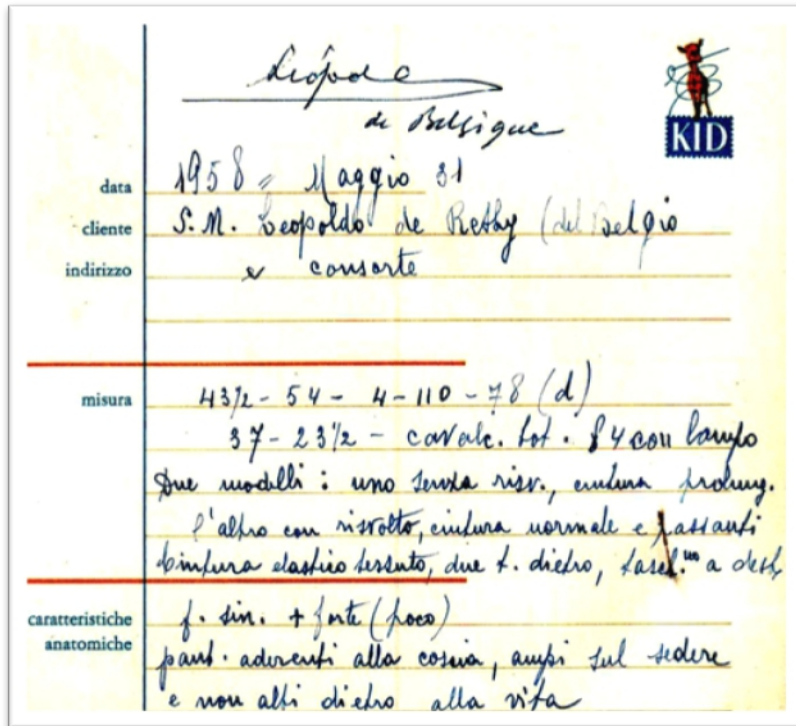 Léopold
de Belgique
KID
data 1958 = Maggio 31
cliente S.M. Leopoldo de Rethy (del Belgio
indirizzo e consorte
misura 43½ - 54 - 4 - 110 - 78 (d)
37 - 23½ - cavalc. tot. 84 con lampo
Due modelli: uno senza risv., cintura prolung.
l'altro con risvolto, cintura normale e passanti
Cintura elastico tessuto, due t. dietro, tasch.no a dest.
caratteristiche f. sin. + forte (poco)
anatomiche pant. aderenti alla coscia, ampi sul sedere
e non alti dietro alla vita